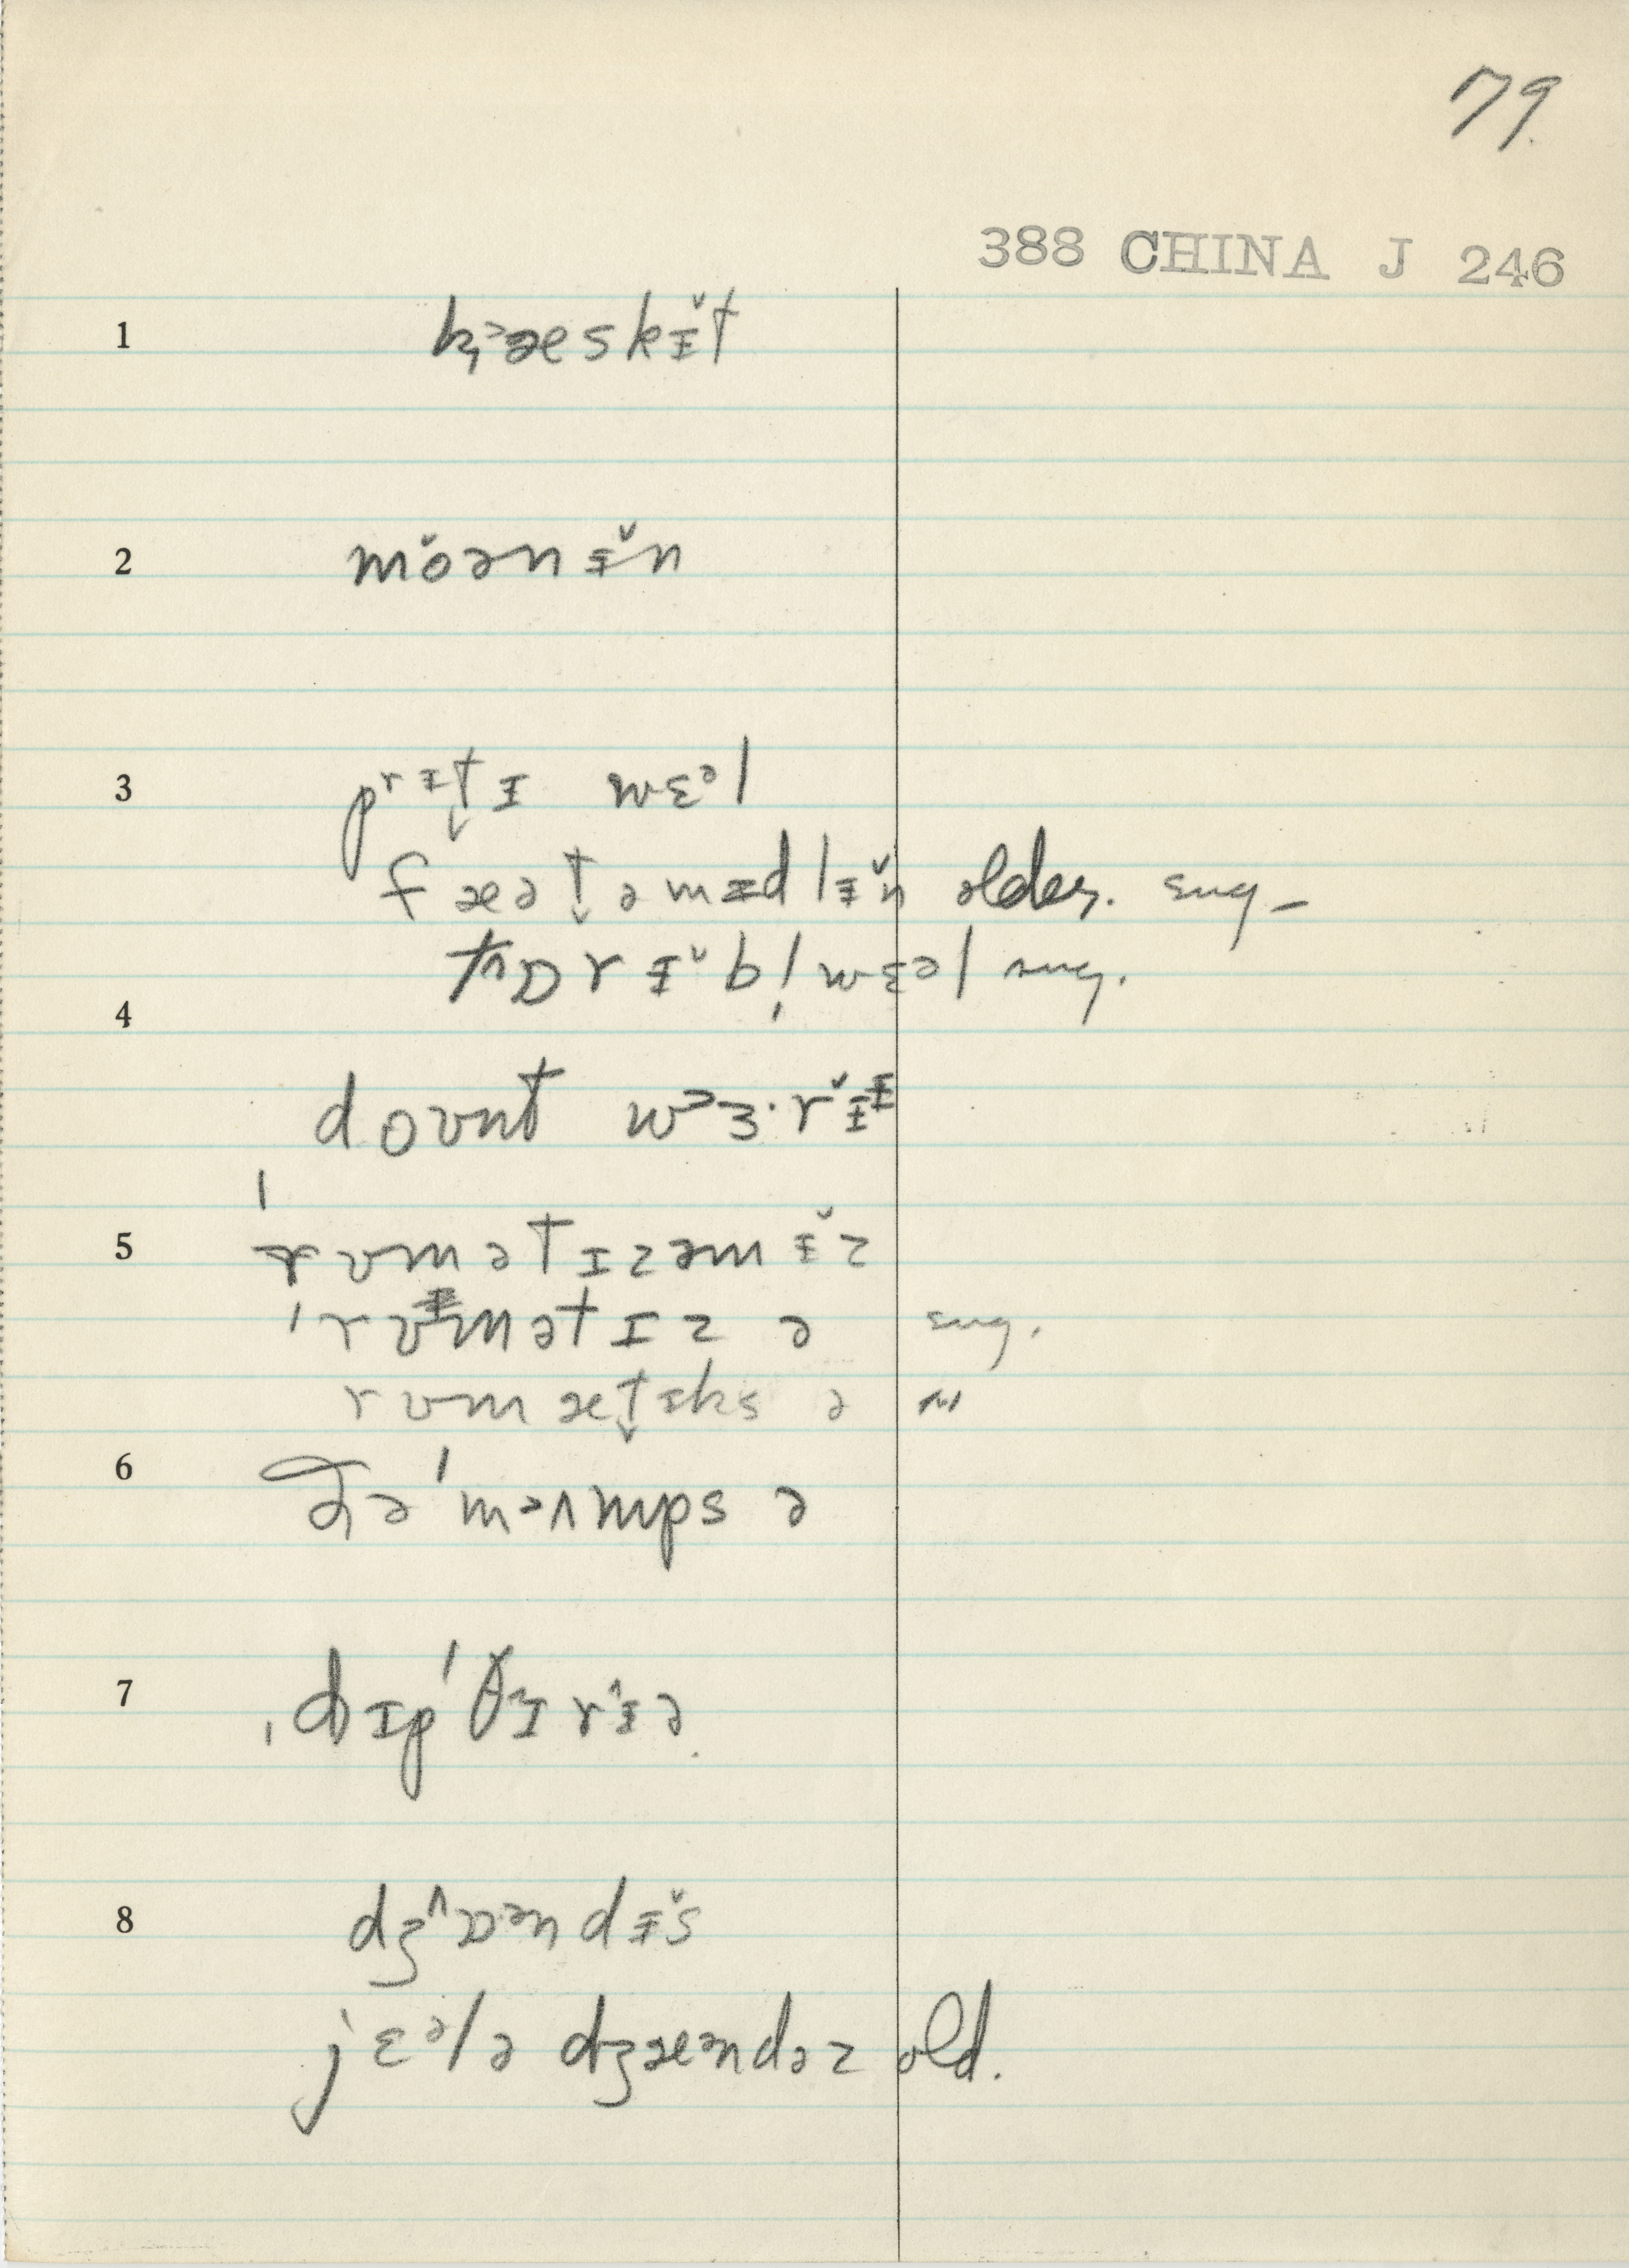 79
388 CHINA J 246
1 k̡ɜæskɨ̌t
2 mǒənɨ̌n
3 prɨt̬ɪ wɛᵊl
fæət̬əmɨdlɨ̌n older. sug–
tʌɒrɨ̌b! wɛəl sug.
4
doʊnt wɜ·rɨ̌
5 'rʊmətɪzəmɨ̌z
'rʊmətɪz ə sug.
rʊmæt̬ɨks ə "
6 ðə 'mɜʌmps ə
7 ˌdɪp'θɪrɨ̂ə
8 dʒ^ɒəndɨ̌s
jɛᵊlə dʒæəndəz old.